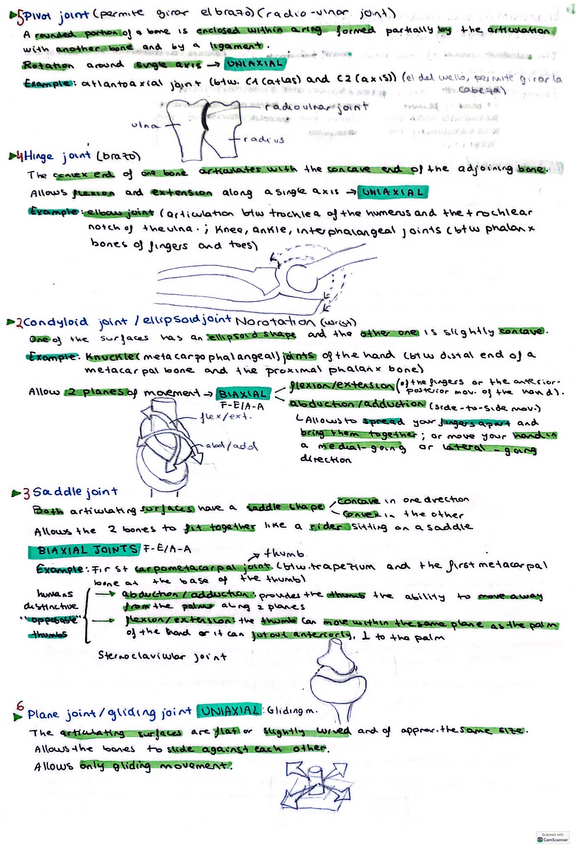 5 Pivot joint (permite girar el brazo) (radio-ulnar joint)
A rounded portion of a bone is enclosed within a ring formed partially by the articulation
with another bone and by a ligament.
Rotation around single axis → UNIAXIAL
Example: atlantoaxial joint (btw. C1 (atlas) and C2 (axis)) (el del cuello, permite girar la
cabeza)
radioulnar joint
ulna
radius
4 Hinge joint (brazo)
The convex end of one bone articulates with the concave end of the adjoining bone.
Allows flexion and extension along a single axis → UNIAXIAL
Example: elbow joint (articulation btw trochlea of the humerus and the trochlear
notch of the ulna.; Knee, ankle, interphalangeal joints (btw phalanx
bones of fingers and toes)
2 Condyloid joint / ellipsoid joint No rotation (wrist)
One of the surfaces has an ellipsoid shape and the other one is slightly concave.
Example: Knuckle (metacarpophalangeal) joints of the hand (btw distal end of a
metacarpal bone and the proximal phalanx bone)
Allow 2 planes of movement → BIAXIAL
F-E/A-A
flexion/extension (of the fingers or the anterior-
posterior mov. of the hand).
abduction/adduction (side-to-side mov.)
Allows to spread your fingers apart and
bring them together; or move your hand in
a medial-going or lateral-going
direction
flex/ext.
abd/add
3 Saddle joint
Both articulating surfaces have a saddle shape
concave in one direction
convex in the other
Allows the 2 bones to fit together like a rider sitting on a saddle
BIAXIAL JOINTS F-E/A-A
thumb
Example: First carpometacarpal joint (btw. trapezium and the first metacarpal
bone at the base of the thumb)
humans
distinctive
"opposite"
thumbs
→ abduction/adduction: provides the thumb the ability to move away
from the palm along 2 planes
→ flexion/extension: the thumb can move within the same plane as the palm
of the hand or it can jut out anteriorly, ⊥ to the palm
Sternoclavicular joint
6
Plane joint/gliding joint UNIAXIAL: Gliding m.
The articulating surfaces are flat or slightly curved and of approx. the same size.
Allows the bones to slide against each other.
Allows only gliding movement.
Scanned with
CamScanner